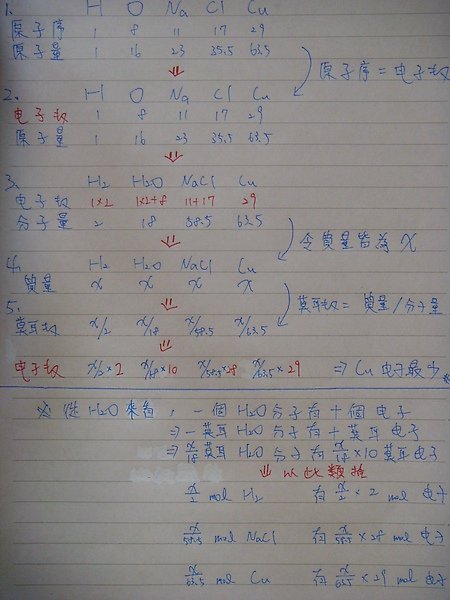 1. H O Na Cl Cu
原子序 1 8 11 17 29
原子量 1 16 23 35.5 63.5
⇓ 原子序=电子数
2. H O Na Cl Cu
电子数 1 8 11 17 29
原子量 1 16 23 35.5 63.5
⇓
3. H₂ H₂O NaCl Cu
电子数 1×2 1×2+8 11+17 29
分子量 2 18 58.5 63.5
⇓ 令質量皆為 x
4. H₂ H₂O NaCl Cu
質量 x x x x
5. ⇓ 莫耳数 = 質量/分子量
莫耳数 x/2 x/18 x/58.5 x/63.5
⇓
电子数 x/2×2 x/18×10 x/58.5×28 x/63.5×29 ⇒ Cu 电子最少
※ 從 H₂O 來看, 一個 H₂O 分子有十個电子
⇒ 一莫耳 H₂O 分子有十莫耳电子
⇒ x/18 莫耳 H₂O 分子有 x/18×10 莫耳电子
⇓ 以此類推
x/2 mol H₂ 有 x/2 × 2 mol 电子
x/58.5 mol NaCl 有 x/58.5 × 28 mol 电子
x/63.5 mol Cu 有 x/63.5 × 29 mol 电子